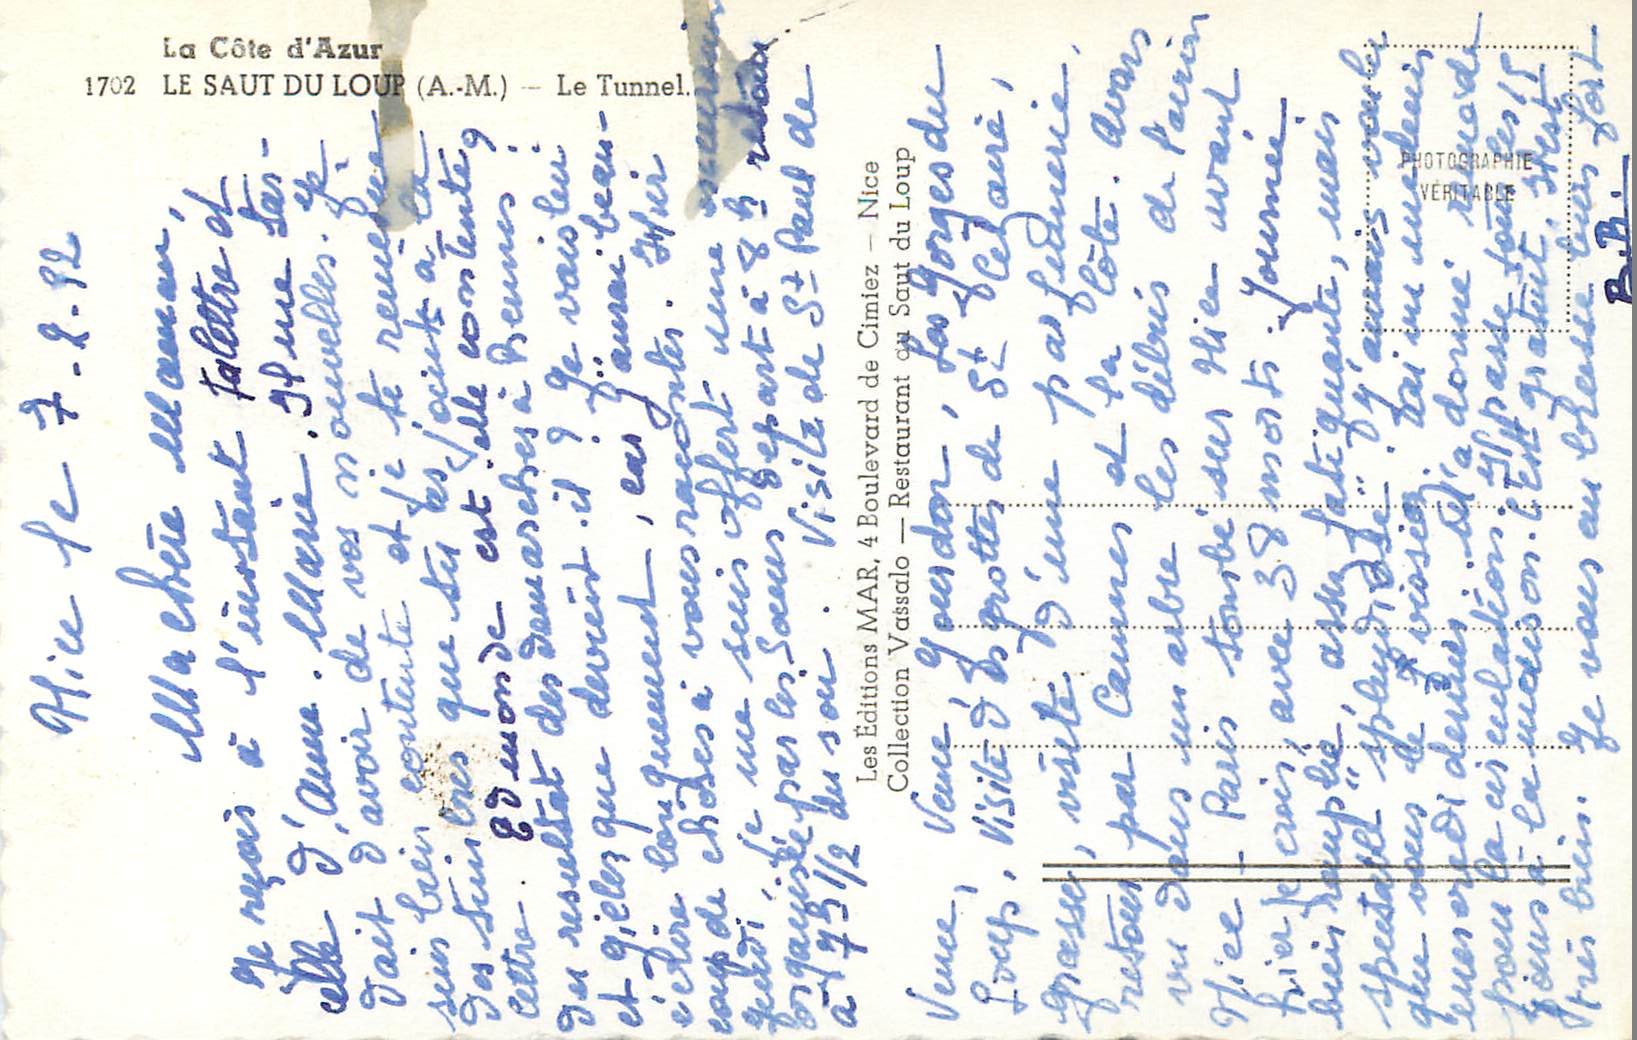 La Côte d'Azur
1702 LE SAUT DU LOUP (A.-M.) — Le Tunnel.
Nice le 7-2-52
Ma chère Maman,
Je reçois à l'instant ta lettre et
celle d'Anne-Marie. Il me tar-
dait d'avoir de vos nouvelles. Je
suis bien contente et je te remercie
des timbres que tu as joint à la
lettre. Edmonde est elle contente
du resultat des demarches à Rennes ?
et Gilles que devient-il ? Je vais leur
écrire longuement, car j'aurai beau-
coup de choses à vous raconter. Hier
jeudi, je me suis offert une excursion
organisée par les Soeurs départ à 8 h retour
à 7 h 1/2 du soir. Visite de St Paul de
Vence, Vence, Gourdon, Les Gorges du
Loup, Visite des grottes de St Cézaire,
Grasse, visite d'une parfumerie,
retour par Cannes et la Côte. Avons
vu dans un arbre les débris de l'avion
Nice - Paris tombé sur Nice avant
hier je crois, avec 38 morts. Journée
bien remplie, assez fatiguante, mais
spectacle splendide. J'aurais voulu
que vous le voissiez. J'ai un malaise
mercredi dernier. On m'a donné un remède
pour la circulation. Il passe tous les 15
jours à la maison. C'est gratuit.
Je vous embrasse tous fort
très bien.
B.B.
Les Éditions MAR, 4 Boulevard de Cimiez — Nice
Collection Vassalo — Restaurant du Saut du Loup
PHOTOGRAPHIE
VÉRITABLE